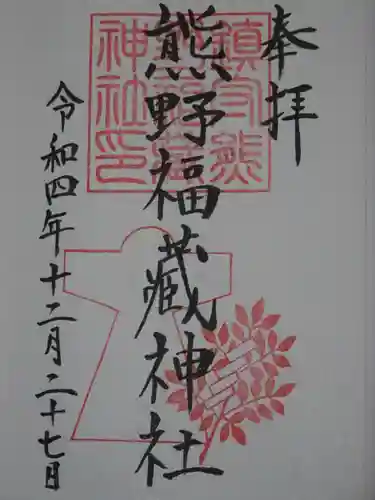 奉拝
熊野福藏神社
鎮守熊
野福藏
神社印
令和四年十二月二十七日